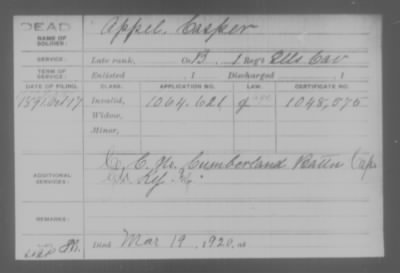 DEAD
NAME OF SOLDIER: Appel, Casper
SERVICE: Late rank, Co. B, 1 Reg't Ills Cav
TERM OF SERVICE: Enlisted , 1 Discharged , 1
DATE OF FILING. CLASS. APPLICATION NO. LAW. CERTIFICATE NO.
1891. Oct 17 Invalid, 1064.621 1048,575
Widow,
Minor,
ADDITIONAL SERVICES: C. Cumberland Battn
Ky.
REMARKS:
Died Mar 19, 1920, at